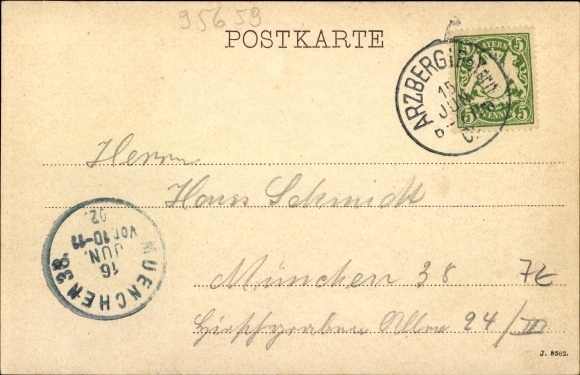 95659
POSTKARTE
ARZBERG
15
JUN
BAYERN
5 5
5 PFENNIG 5
Herrn
Hans Schmidt
MUENCHEN 38.
16
JUN.
VOR.10-11
02.
München 38 7E
Hirschgarten Allee 24/III
J. 8562.